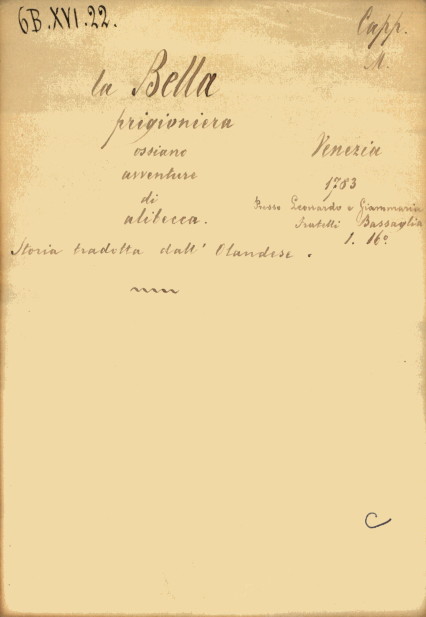 6B.XVI.22.
Capp.
A.
la Bella
prigioniera
ossiano
avventure
di
alibecca.
Venezia
1783
Presso Leonardo e Giammaria
Fratelli Bassaglia
1. 16º
Storia tradotta dall' Olandese.
C